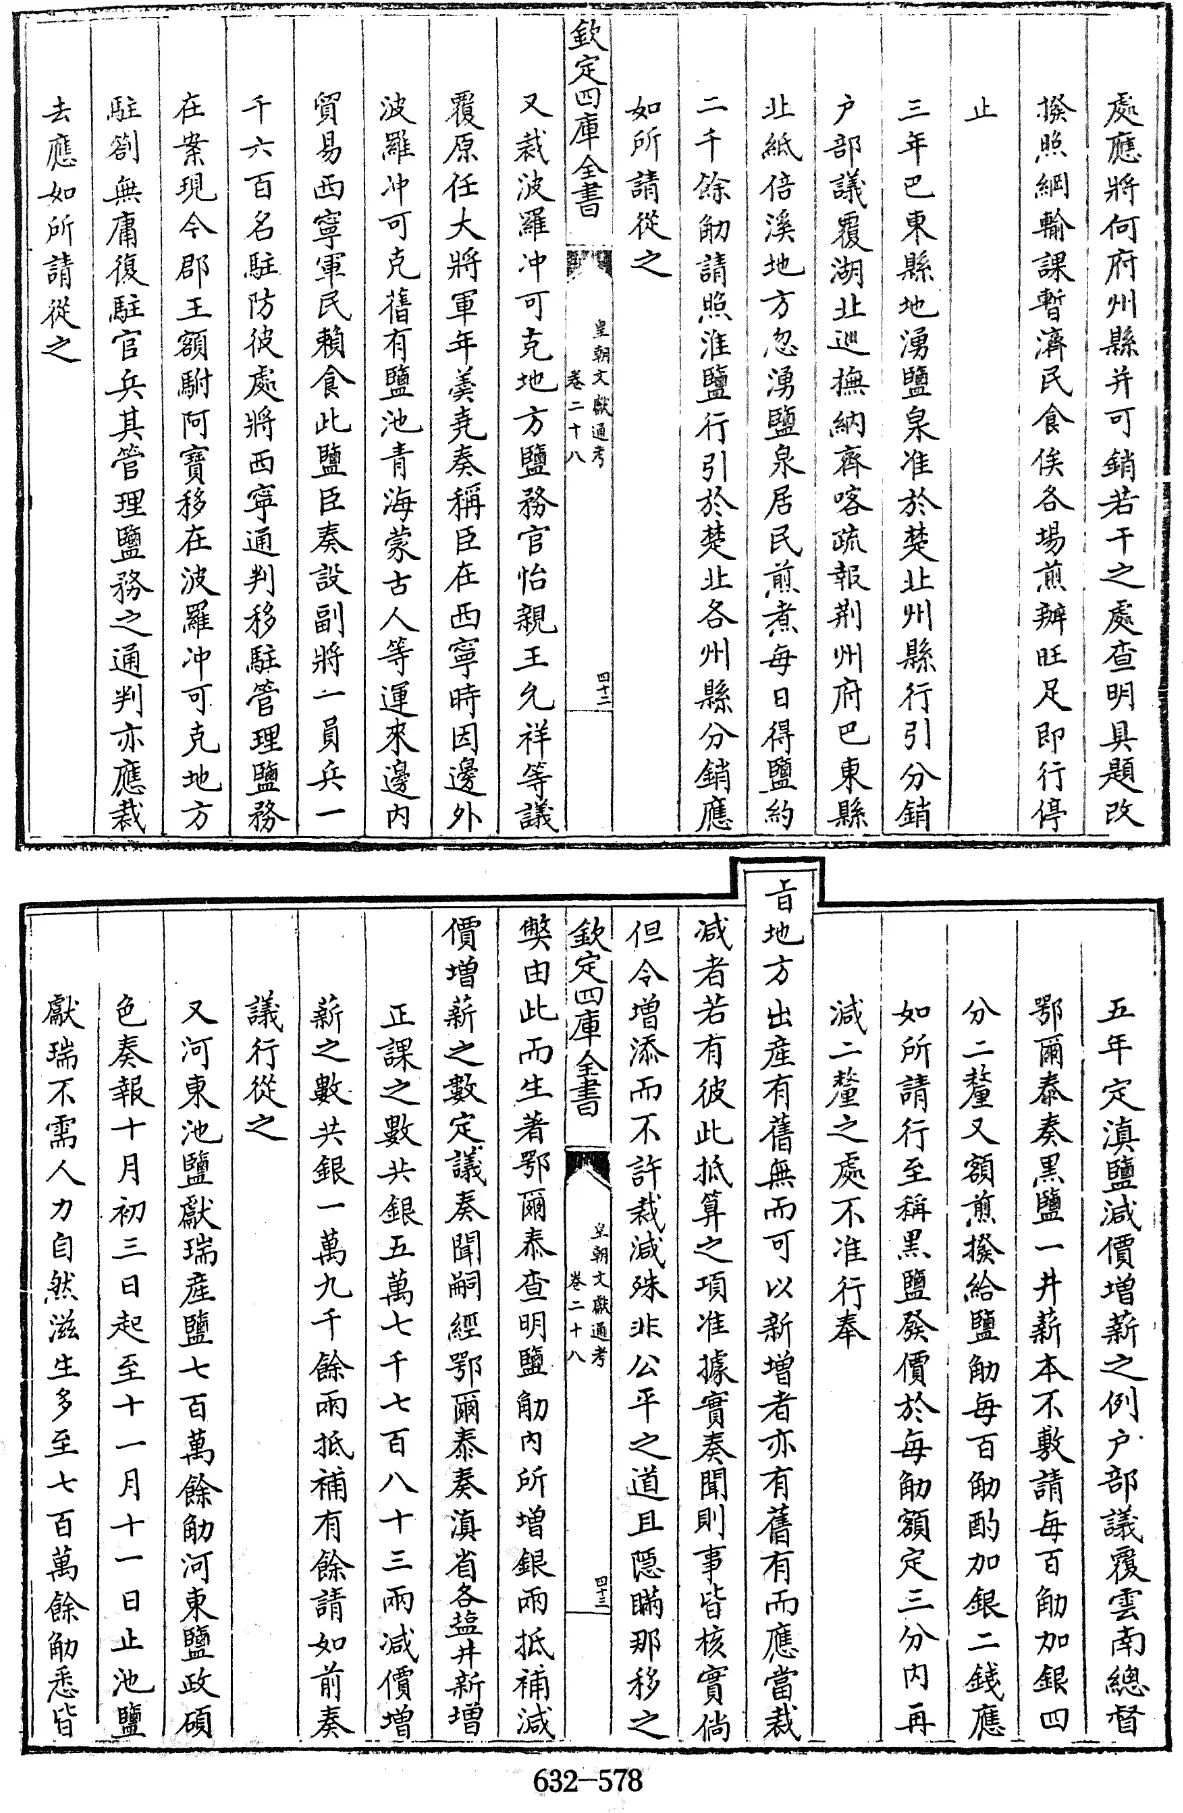 處應將何府州縣并可銷若干之處查明具題改
撥照綱輸課暫濟民食俟各場煎辦旺足即行停
止
三年巴東縣地湧鹽泉准於楚北州縣行引分銷
户部議覆湖北巡撫納齊喀疏報荆州府巴東縣
北紙倍溪地方忽湧鹽泉居民煎煮每日得鹽約
二千餘觔請照淮鹽行引於楚北各州縣分銷應
如所請從之
欽定四庫全書
皇朝文獻通考
卷二十八
四十二
又裁波羅冲可克地方鹽務官怡親王允祥等議
覆原任大將軍年羮尭奏稱臣在西寧時因邊外
波羅冲可克舊有鹽池青海蒙古人等運來邊内
貿易西寧軍民賴食此鹽臣奏設副將一員兵一
千六百名駐防彼處將西寧通判移駐管理鹽務
在案現今郡王額駙阿寶移在波羅冲可克地方
駐劄無庸復駐官兵其管理鹽務之通判亦應裁
去應如所請從之
五年定滇鹽減價增薪之例户部議覆雲南總督
鄂爾泰奏黑鹽一井薪本不敷請每百觔加銀四
分二釐又額煎撥給鹽觔每百觔酌加銀二錢應
如所請行至稱黑鹽發價於每觔額定三分内再
減二釐之處不准行奉
旨地方出産有舊無而可以新增者亦有舊有而應當裁
减者若有彼此抵算之項准據實奏聞則事皆核實倘
但令增添而不許裁減殊非公平之道且隠瞞那移之
欽定四庫全書
皇朝文獻通考
卷二十八
四十三
弊由此而生著鄂爾泰查明鹽觔内所增銀兩抵補減
價增薪之數定議奏聞嗣經鄂爾泰奏滇省各鹽井新增
正課之數共銀五萬七千七百八十三兩减價增
薪之數共銀一萬九千餘兩抵補有餘請如前奏
議行從之
又河東池鹽獻瑞産鹽七百萬餘觔河東鹽政碩
色奏報十月初三日起至十一月十一日止池鹽
獻瑞不需人力自然滋生多至七百萬餘觔悉皆
632—578